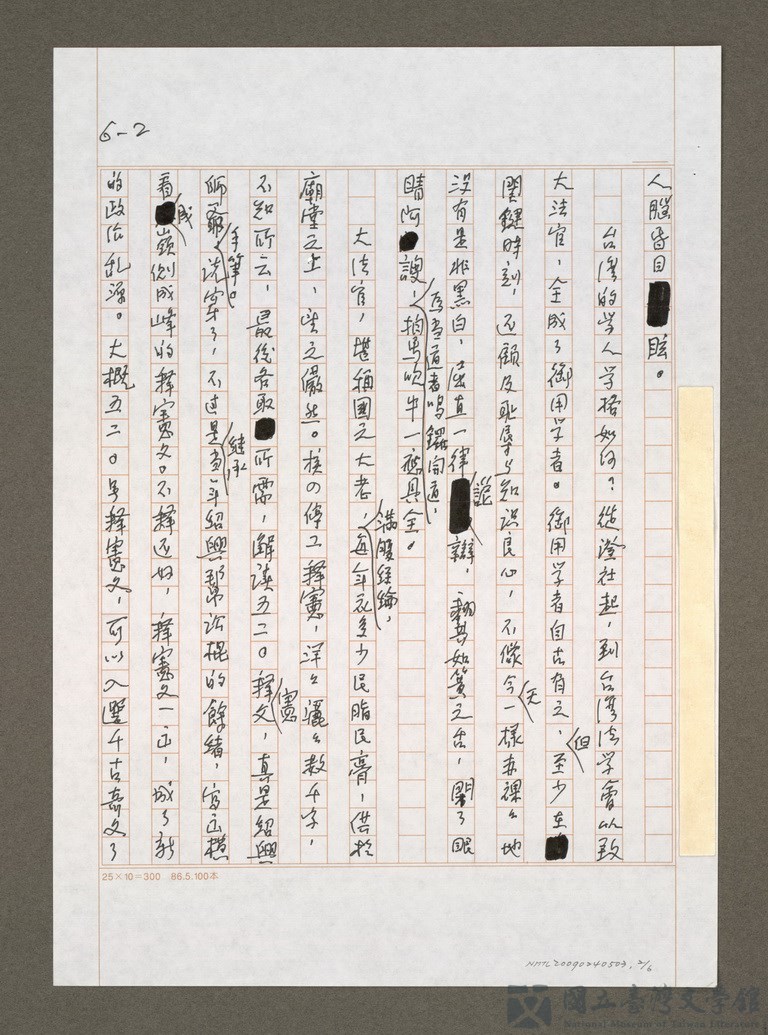 6-2
人腦昏目眩。
台灣的学人学格如何？從澄社起，到台灣法学會以致
大法官，全成了御用学者。御用学者自古有之，但至少在
関鍵時刻，还顧及耻辱与知识良心，不像今天一樣赤裸々地
没有是非黑白，法直一律詭辯，翻其如簧之舌，閉了眼
睛阿諛，為当道者鳴鑼開道，拍馬吹牛一應具全。
大法官，堪稱國之大老，滿腹經綸，每年花多少民脂民膏，供於
廟堂之上，望之儼然。核四停工釋憲，洋々灑々数千字，
不知所云，最後各取所需，解读五二〇釋憲文，真是紹興
师爺手筆。说穿了，不过是繼承当年紹興帮訟棍的餘緒，寫出横
看成嶺側成峰的釋憲文。不釋还好，釋憲文一出，成了新
的政治乱源。大概五二〇号釋憲文，可以入選千古奇文了
25×10=300 86.5.100本
NMTL20090240503, 2/6
國立臺灣文學館
National Museum of Taiwan Literature